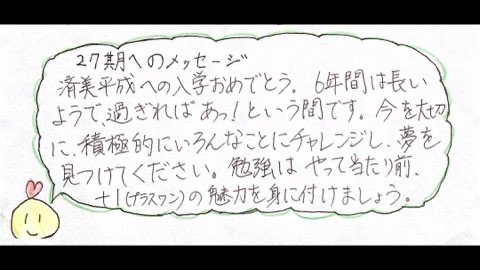 27期へのメッセージ
済美平成への入学おめでとう。6年間は長い
ようで、過ぎればあっ!という間です。今を大切
に、積極的にいろんなことにチャレンジし、夢を
見つけてください。勉強は やって当たり前、
+1(プラスワン)の魅力を身に付けましょう。